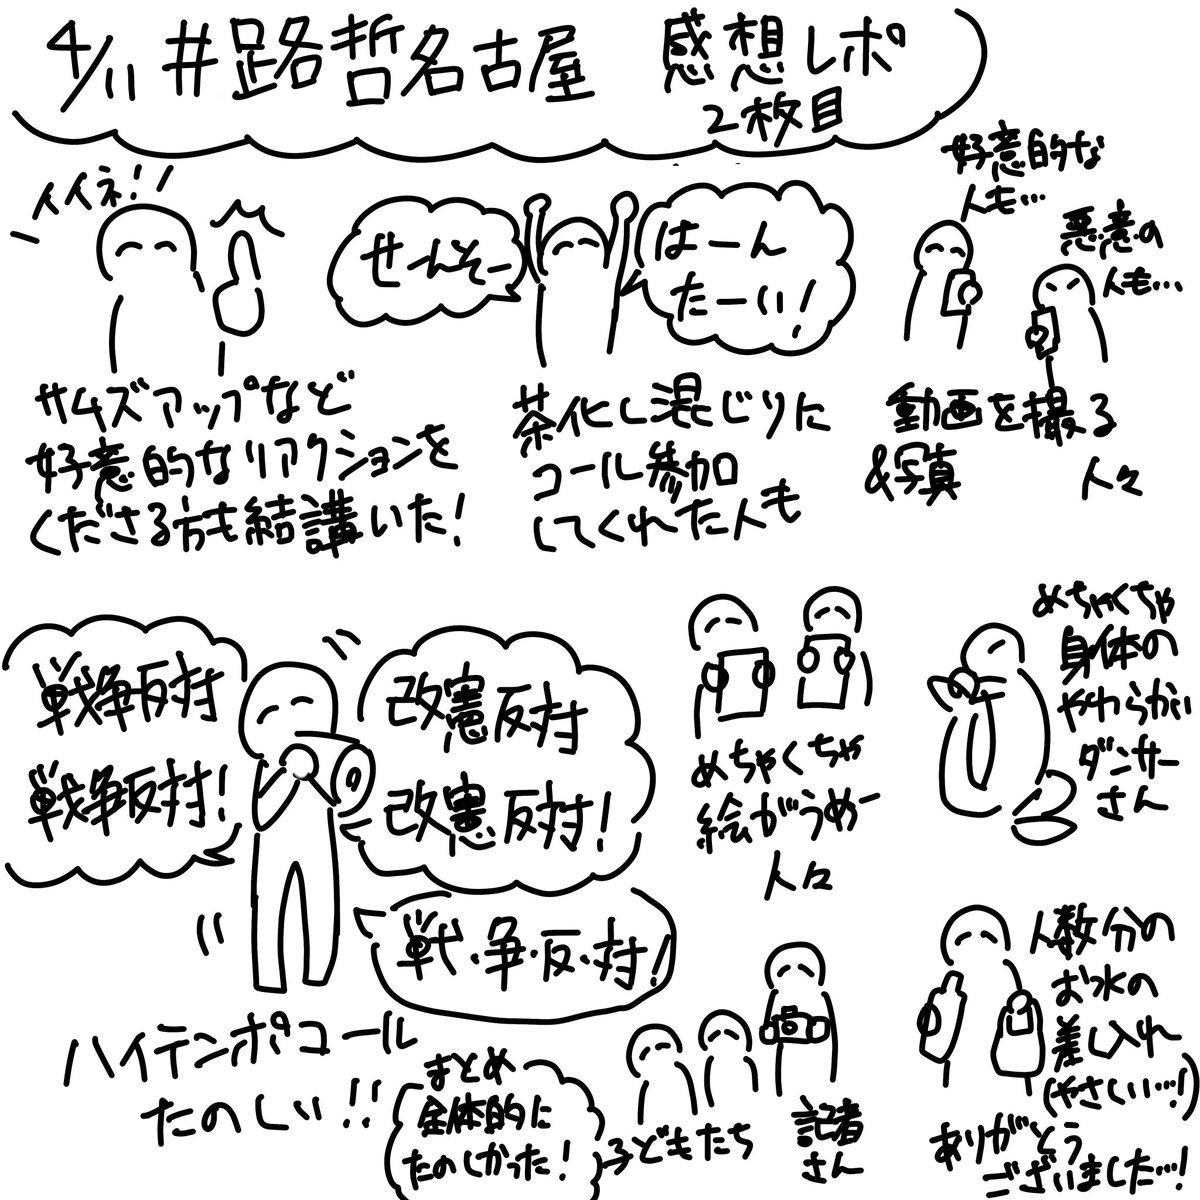 4/11 #路哲名古屋 感想レポ
2枚目
イイネ!!
サムズアップなど
好意的なリアクションを
くださる方も結講いた!
せーんそー
はーん
たーい!
茶化し混じりに
コール参加
してくれた人も
好意的な
人も…
悪意の
人も…
動画を撮る
&写真 人々
戦争反対
戦争反対!
改憲反対
改憲反対!
戦・争・反・対!
ハイテンポコール
たのしい!!
めちゃくちゃ
絵がうめー
人々
めちゃくちゃ
身体の
やわらかい
ダンサー
さん
まとめ
全体的に
たのしかった!
子どもたち
記者
さん
人数分の
お水の
差し入れ
(やさしい…!)
ありがとう
ございました…!